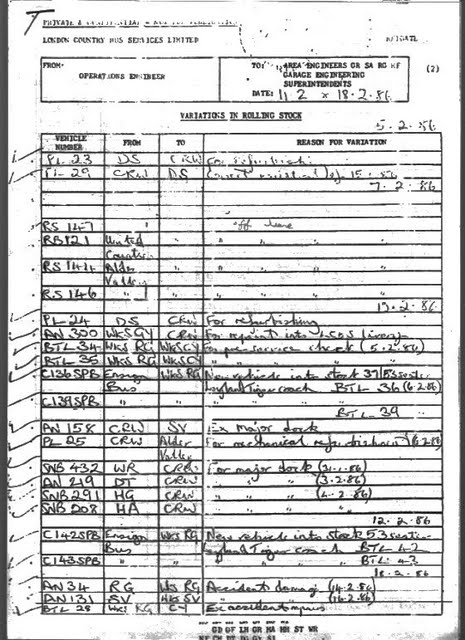 PRIVATE & CONFIDENTIAL
LONDON COUNTRY BUS SERVICES LIMITED REIGATE
FROM- OPERATIONS ENGINEER
TO: AREA ENGINEERS GR SA RG
GARAGE ENGINEERING
SUPERINTENDENTS
(2)
DATE: 11.2 x 18.2.86.
VARIATIONS IN ROLLING STOCK
5.2.86
VEHICLE NUMBER FROM TO REASON FOR VARIATION
PL 23 DS CRW For refurbish:
PL 29 CRW DS
7.2.86
RS 147 off lease
RB 121 United Counties " " "
RS 144 Alder Valley " " "
RS 146 " " " "
PL 24 DS CRW For refurbishing
AN 300 WKS GY CRW For repaint into livery
BTL 34 WKS RG WKS GY For pre-service check (5.2.86)
BTL 35 WKS RG WKS GY " " "
C136SPB Ensign Bus WKS RG New vehicle into stock 53 seater
Leyland Tiger coach BTL 36 (6.2.86)
C139SPB " " " "
BTL 39
AN 158 CRW SV Ex Major dock
PL 25 CRW Alder Valley For mechanical refurbishment
SNB 432 WR CRW For major dock (21.1.86)
AN 219 DT CRW " " (3.2.86)
SNB 291 HG CRW " " (4.2.86)
SNB 208 HA CRW " "
12.2.86
C142SPB Ensign Bus WKS RG New vehicle into stock 53 seater
Leyland Tiger coach BTL 42
C143SPB " " " BTL 43
18.2.86
AN 34 RG WKS RG Accident damage (14.2.86)
AN 131 SV WKS SV " " (14.2.86)
BTL 28 WKS RG GY Ex accident repairs
GD GF LH GR HA HH ST WR